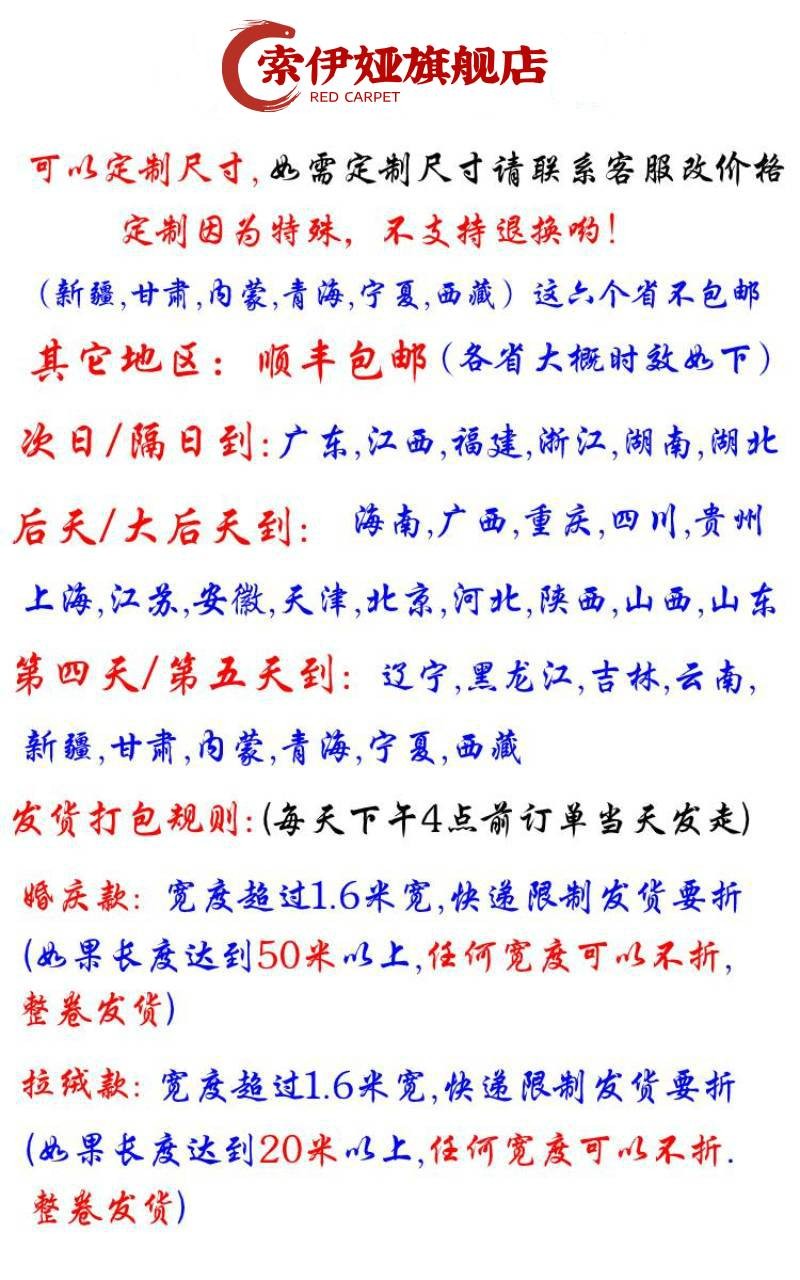 索伊娅旗舰店
RED CARPET
可以定制尺寸,如需定制尺寸请联系客服改价格
定制因为特殊，不支持退换哟!
（新疆,甘肃,内蒙,青海,宁夏,西藏）这六个省不包邮
其它地区：顺丰包邮（各省大概时效如下）
次日/隔日到:广东,江西,福建,浙江,湖南,湖北
后天/大后天到：海南,广西,重庆,四川,贵州
上海,江苏,安徽,天津,北京,河北,陕西,山西,山东
第四天/第五天到：辽宁,黑龙江,吉林,云南,
新疆,甘肃,内蒙,青海,宁夏,西藏
发货打包规则:(每天下午4点前订单当天发走)
婚庆款：宽度超过1.6米宽,快递限制发货要折
(如果长度达到50米以上,任何宽度可以不折,
整卷发货)
拉绒款：宽度超过1.6米宽,快递限制发货要折
(如果长度达到20米以上,任何宽度可以不折.
整卷发货)